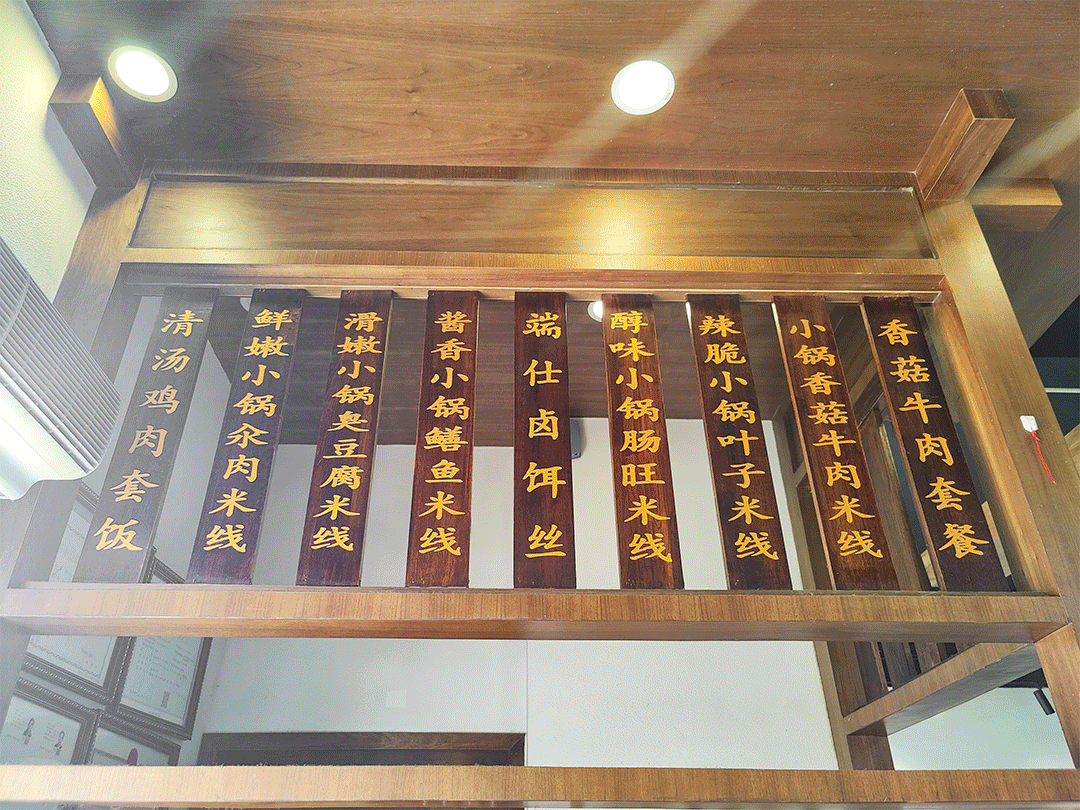 清汤鸡肉套饭
鲜嫩小锅汆肉米线
滑嫩小锅臭豆腐米线
酱香小锅鳝鱼米线
端仕卤饵丝
醇味小锅肠旺米线
辣脆小锅叶子米线
小锅香菇牛肉米线
香菇牛肉套餐